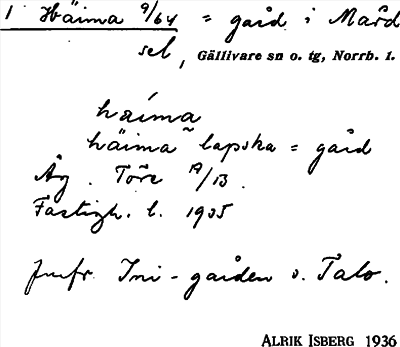 1 Häima 9/64 = gård i Mård
sel, Gällivare sn o. tg, Norrb. l.
háima
häima ~ lapska = gård
Äg. Töre 19/13.
Fastigh. l. 1935
Jmfr. Ini-gården o. Talo.
ALRIK ISBERG 1936